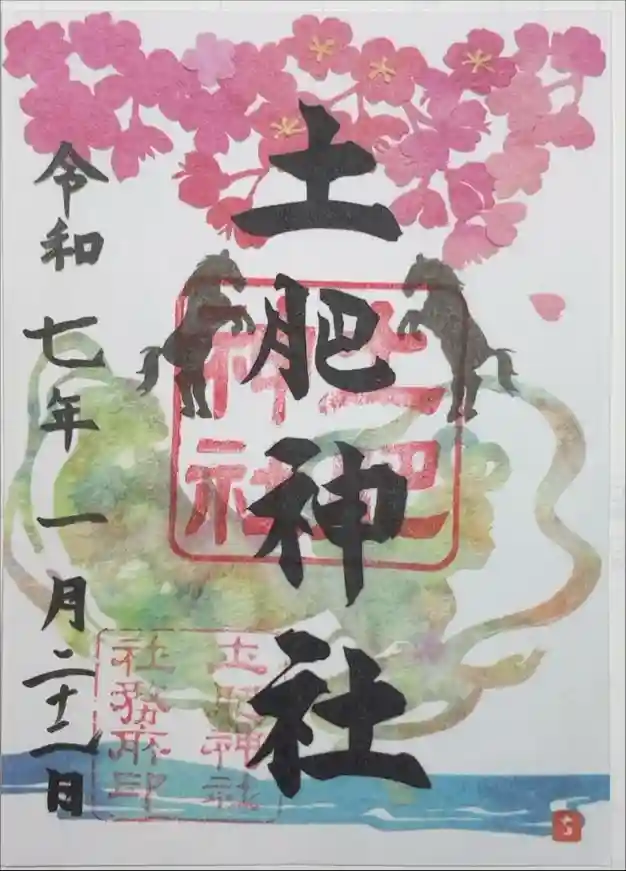 土肥神社
土肥
神社
令和七年一月二十二日
土肥神社
社務所印
ち